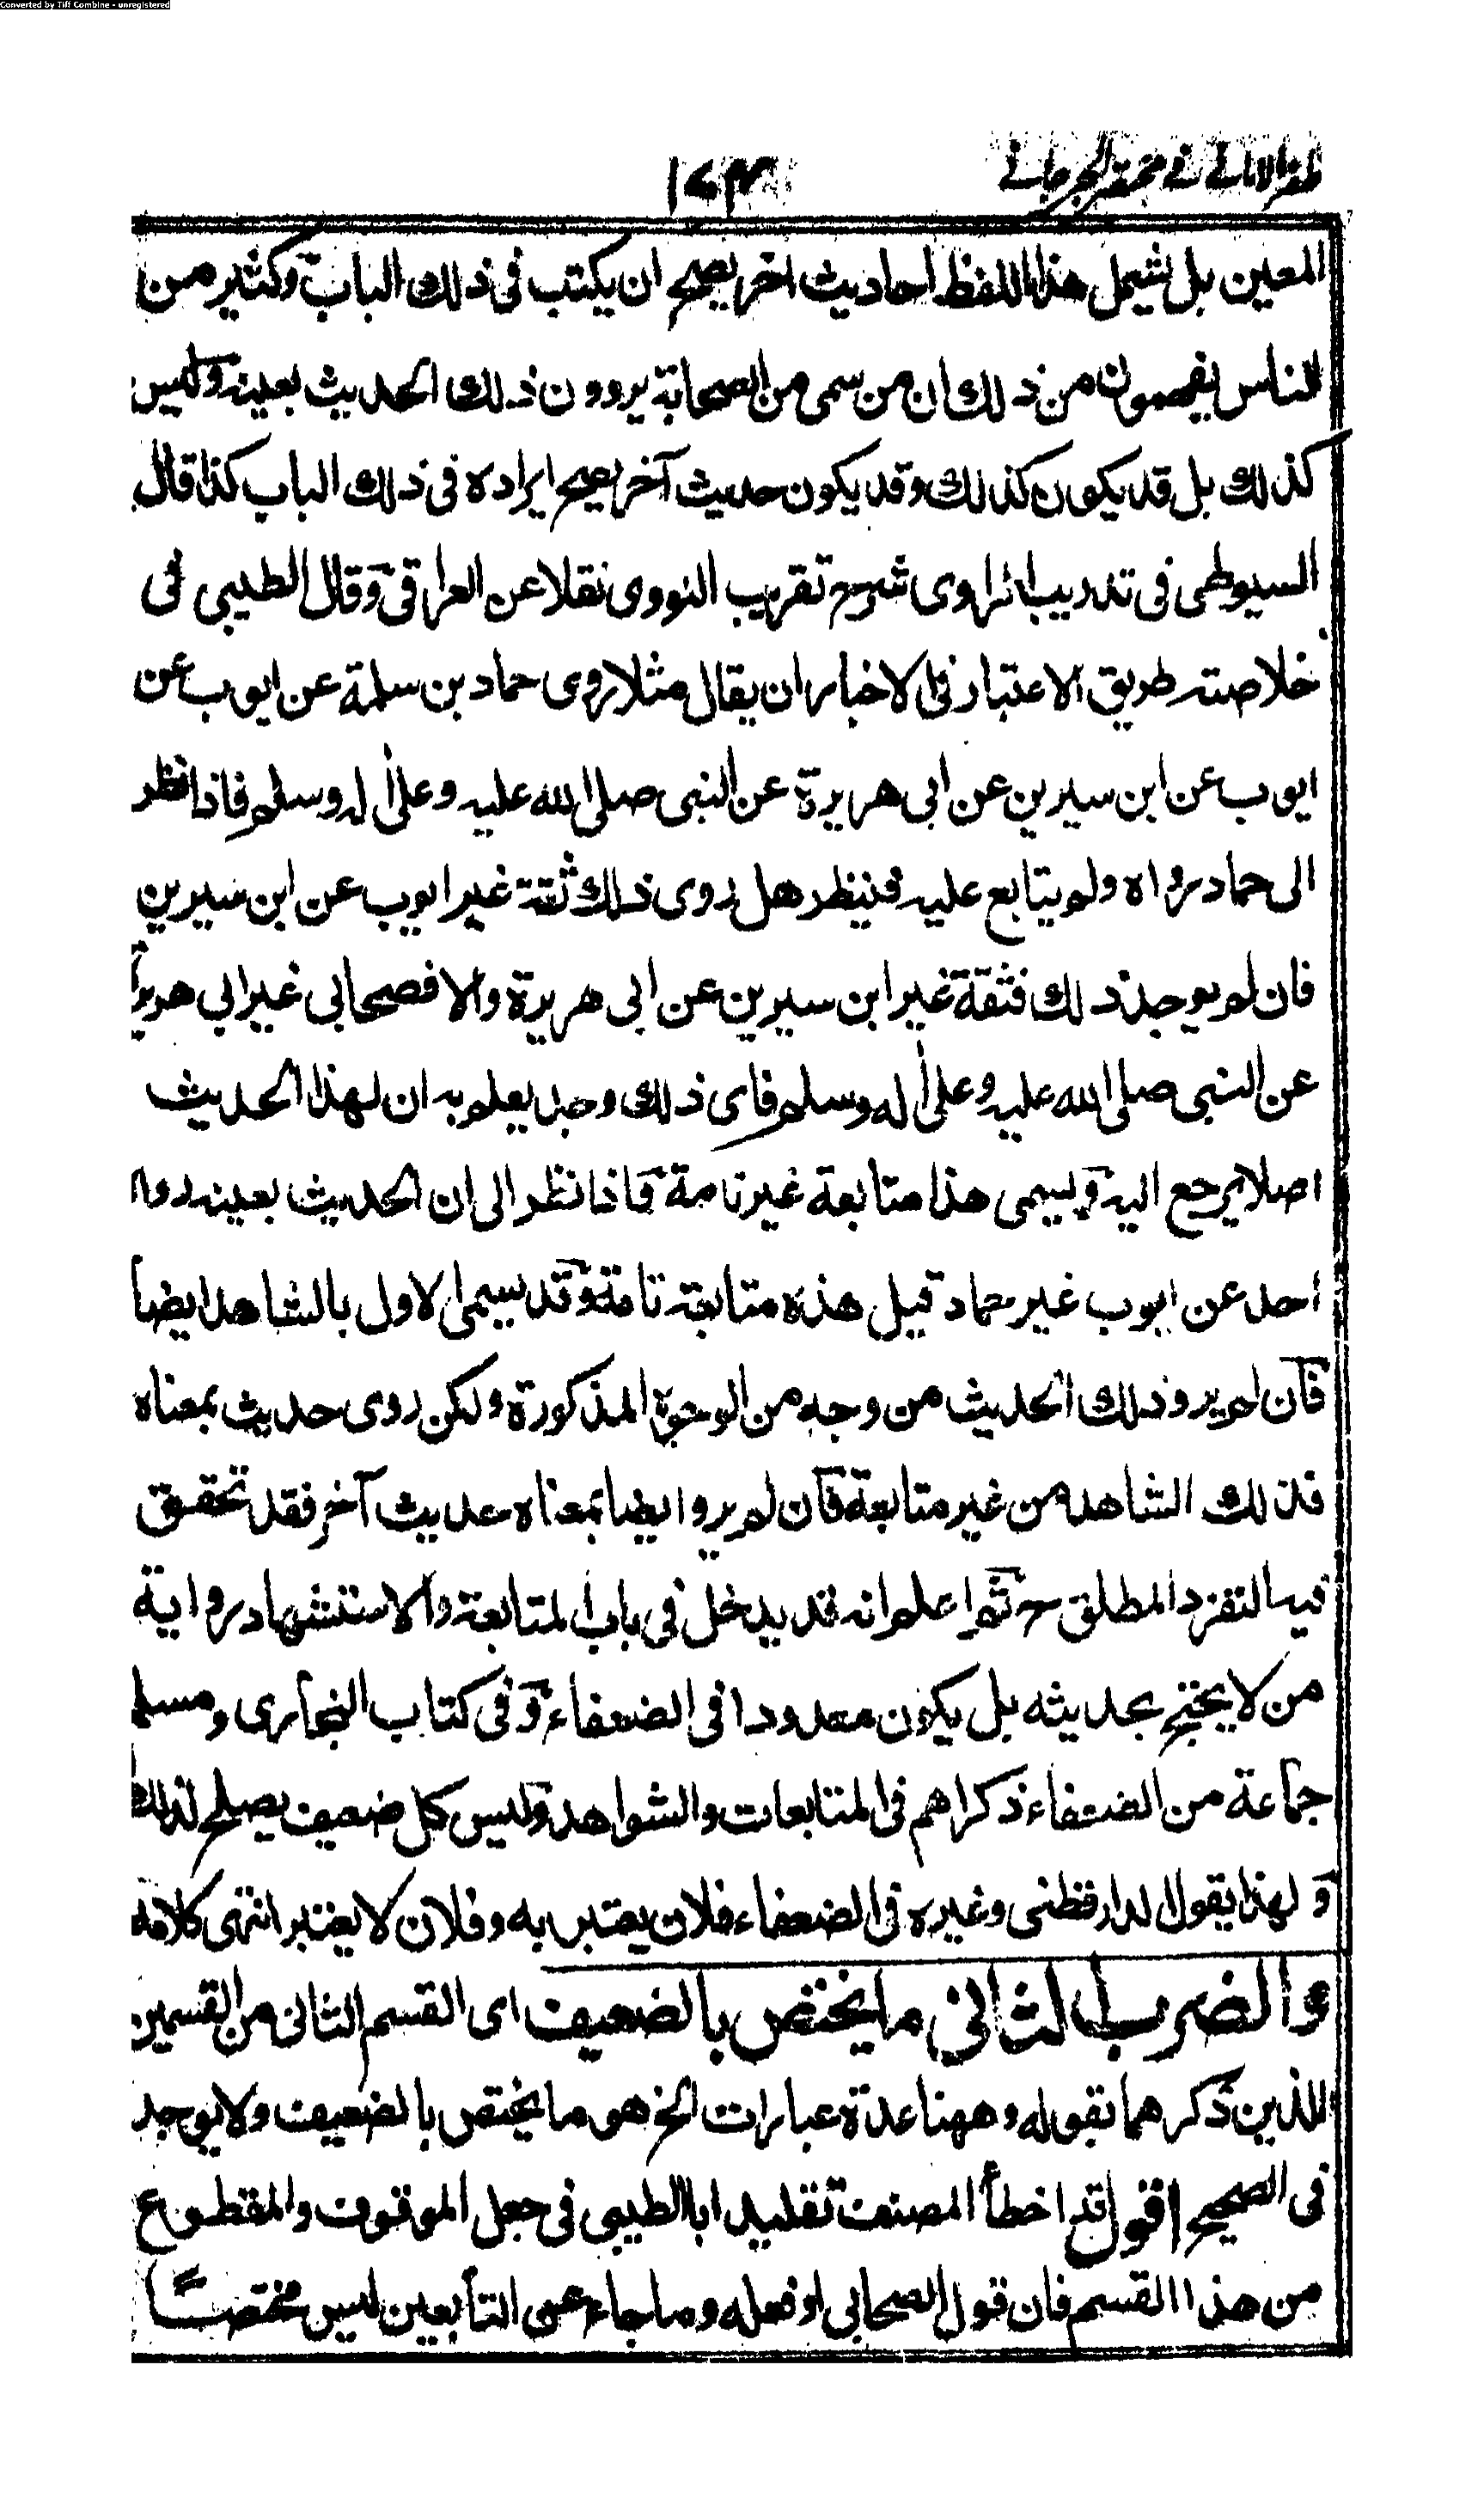 Converted by Tiff Combine - unregistered
ظفر الامانى فى مختصر الجرجانى
١٧٣
المعين بل يشمل هذا اللفظ احاديث اخر يصح ان يكتب فى ذلك الباب وكثير من
الناس يفهمون من ذلك ان من سمى من الصحابة يروون ذلك الحديث بعينه وليس
كذلك بل قد يكون كذلك وقد يكون حديث آخر يصح ايراده فى ذلك الباب كذا قال
السيوطى فى تدريب الراوى شرح تقريب النووى نقلا عن العراقى وقال الطيبى فى
خلاصته طريق الاعتبار فى الاخبار ان يقال مثلا روى حماد بن سلمة عن ايوب عن
ايوب عن ابن سيرين عن ابى هريرة عن النبى صلى الله عليه وعلى اله وسلم فاذا نظر
الى حماد رواه ولم يتابع عليه فينظر هل روى ذلك ثقة غير ايوب عن ابن سيرين
فان لم يوجد ذلك فثقة غير ابن سيرين عن ابى هريرة والا فصحابى غير ابى هريرة
عن النبى صلى الله عليه وعلى اله وسلم فاى ذلك وجد يعلم به ان لهذا الحديث
اصلا يرجع اليه ويسمى هذا متابعة غير تامة فاذا نظر الى ان الحديث بعينه رواه
احد عن ايوب غير حماد قيل هذه متابعة تامة وقد يسمى الاول بالشاهد ايضا
فان لم يرو ذلك الحديث من وجه من الوجوه المذكورة ولكن روى حديث بمعناه
فذلك الشاهد من غير متابعة فان لم يرو ايضا بمعناه حديث آخر فقد تحقق
فيه التفرد المطلق ح ثم اعلم انه قد يدخل فى باب المتابعة والاستشهاد رواية
من لا يحتج بحديثه بل يكون معدودا فى الضعفاء وفى كتاب البخارى ومسلم
جماعة من الضعفاء ذكراهم فى المتابعات والشواهد وليس كل ضعيف يصلح لذلك
ولهذا يقول الدارقطنى وغيره فى الضعفاء فلان يعتبر به وفلان لا يعتبر انتهى كلامه
والضرب الثانى ما يختص بالضعيف اى القسم الثانى من القسمين
اللذين ذكرهما بقوله وههنا عدة عبارات الخ هو ما يختص بالضعيف ولا يوجد
فى الصحيح اقول قد اخطأ المصنف تقليدا بالطيبى فى جعل الموقوف والمقطوع
من هذا القسم فان قول الصحابى او فعله وما جاء عن التابعين ليس مختصا